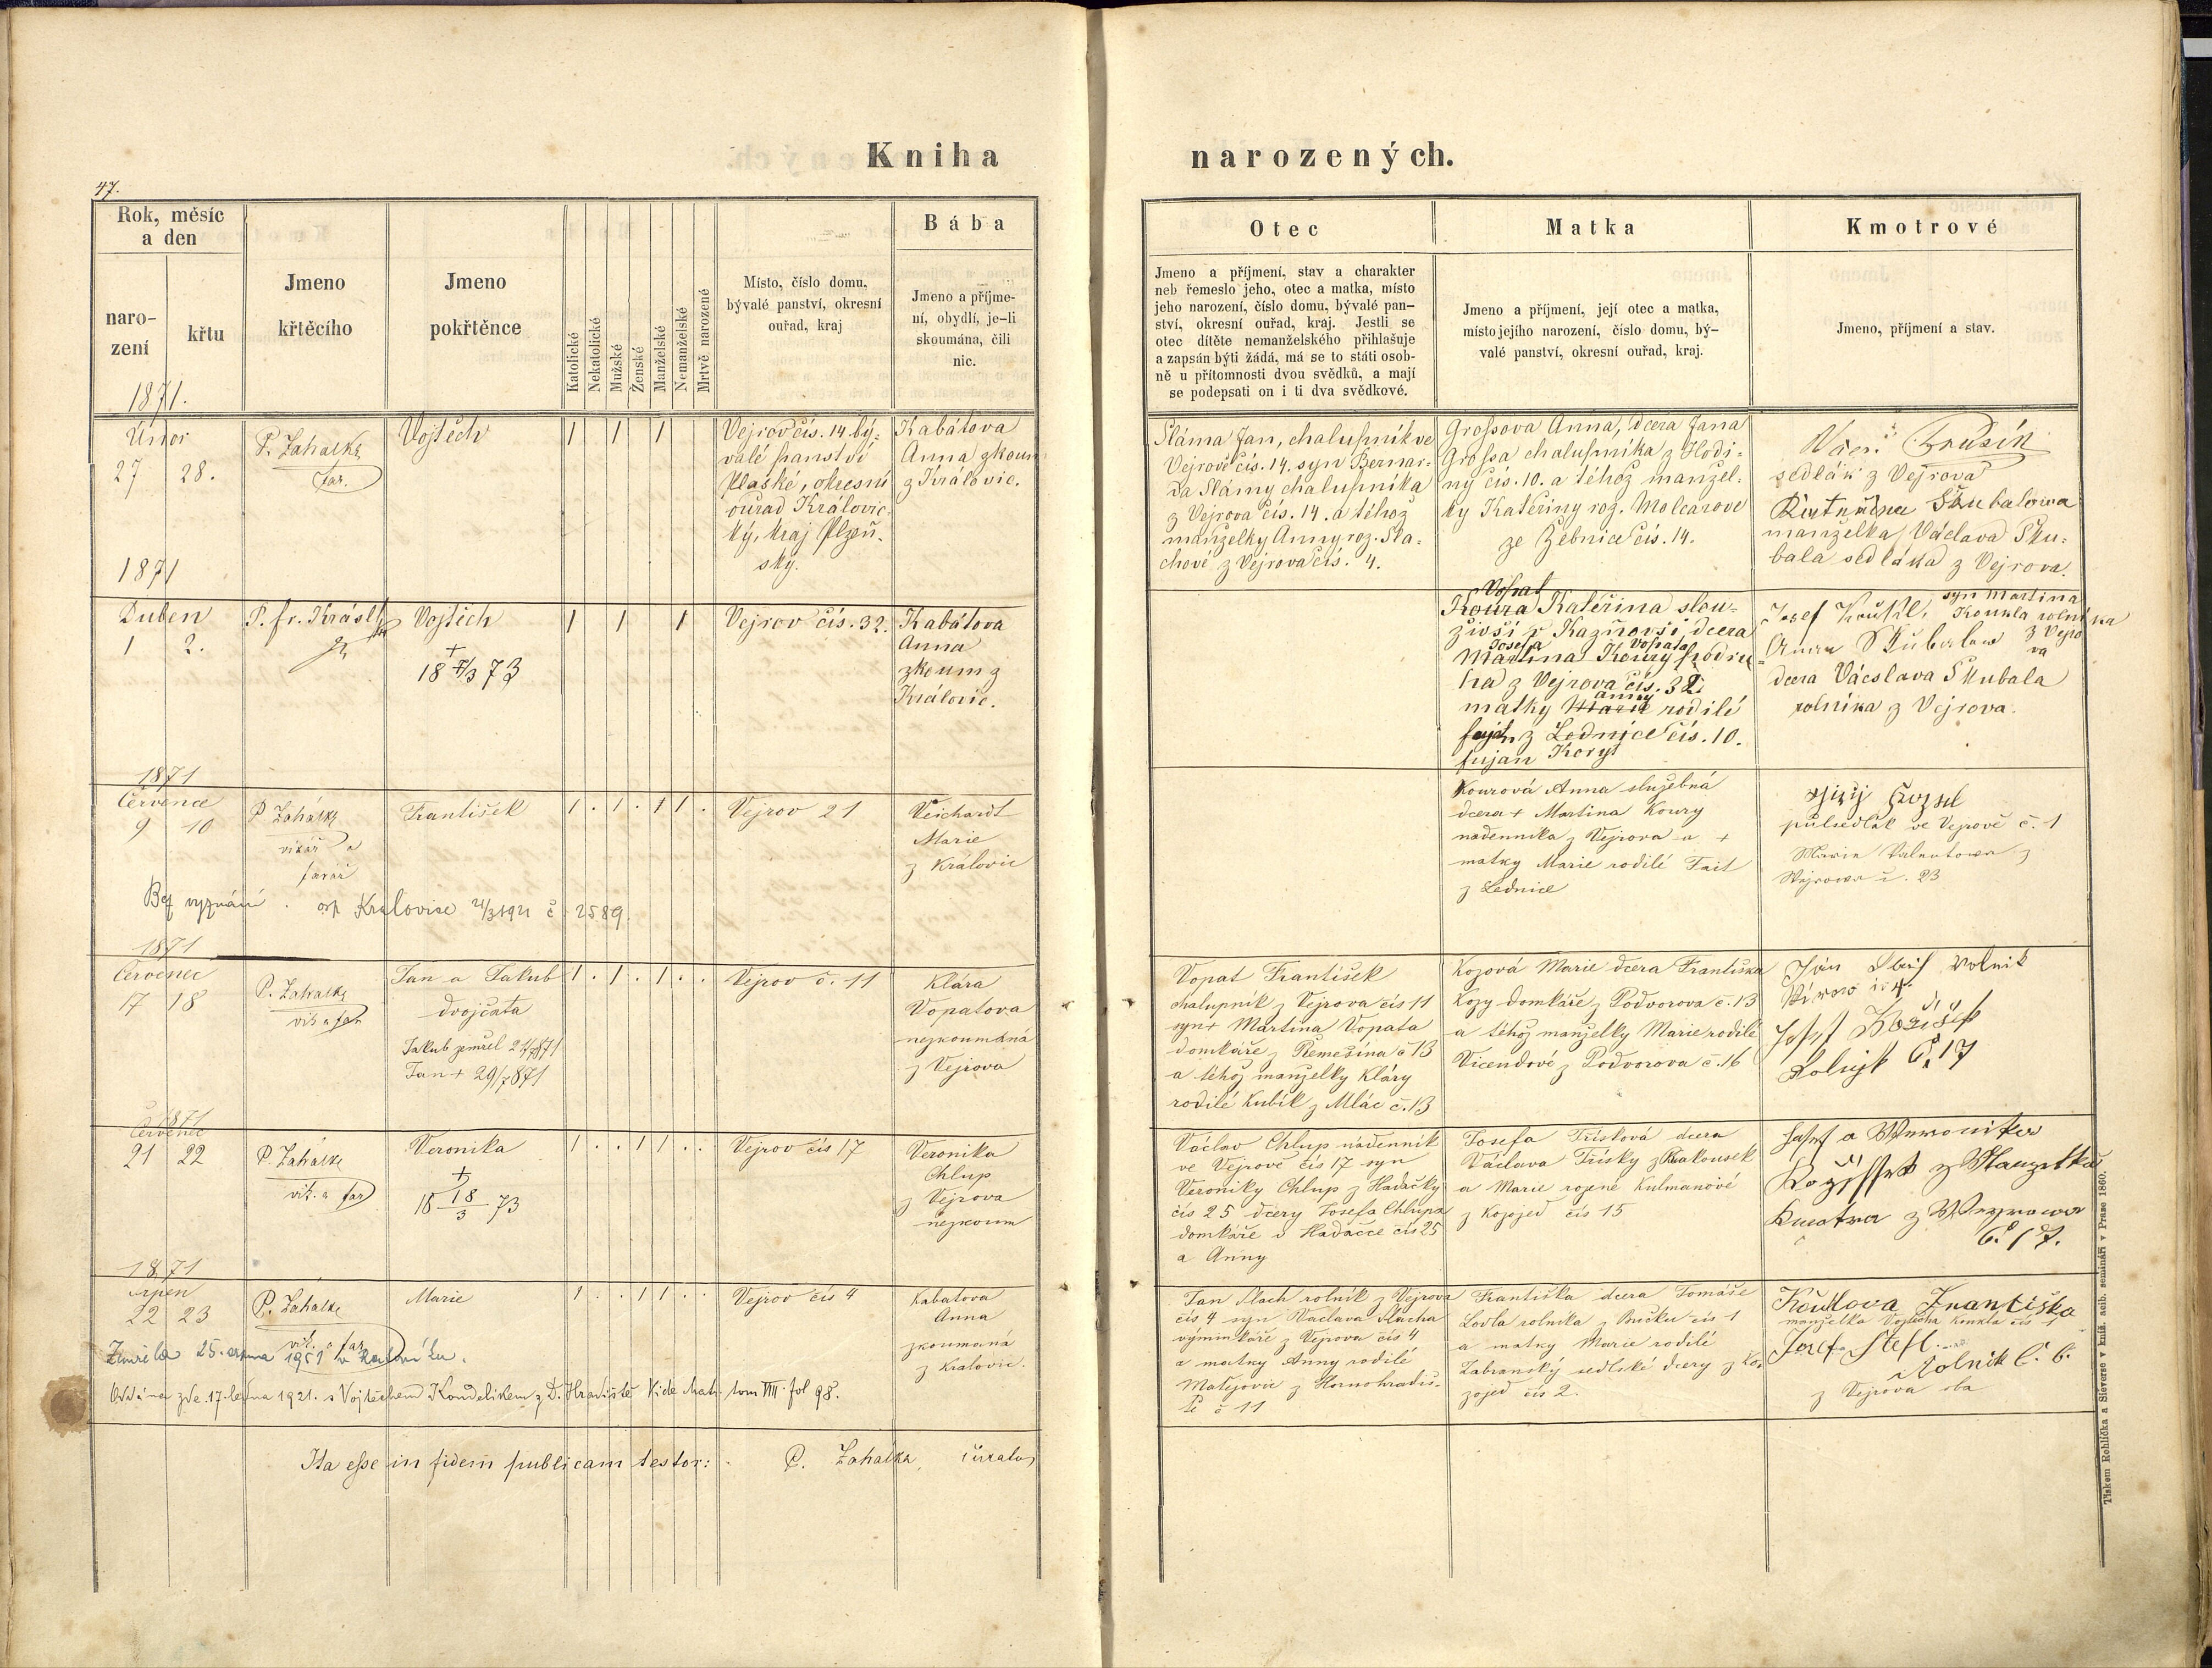 Kniha narozených.
47.
Rok, měsíc a den
naro-
zení
křtu
Jmeno
křtěcího
Jmeno
pokřtěnce
Katolické
Nekatolické
Mužské
Ženské
Manželské
Nemanželské
Mrtvě narozené
Místo, číslo domu,
bývalé panství, okresní
ouřad, kraj
Bába
Jmeno a příjme-
ní, obydlí, je-li
skoumána, čili
nic.
Otec
Jmeno a příjmení, stav a charakter
neb řemeslo jeho, otec a matka, místo
jeho narození, číslo domu, bývalé pan-
ství, okresní ouřad, kraj. Jestli se
otec dítěte nemanželského přihlašuje
a zapsán býti žádá, má se to státi osob-
ně u přítomnosti dvou svědků, a mají
se podepsati on i ti dva svědkové.
Matka
Jmeno a příjmení, její otec a matka,
místo jejího narození, číslo domu, bý-
valé panství, okresní ouřad, kraj.
Kmotrové
Jmeno, příjmení a stav.
1871.
Únor
27 28.
P. Zahalka
far.
Vojtěch
1 1 1
Vejrov čís. 14. bý-
valé panství
Plaské, okresní
ouřad Královic-
ký, kraj Plzeň-
ský.
Kabátova
Anna zkoum
z Králović.
Sláma Jan, chalupník ve
Vejrově čís. 14. syn Bernar-
da Slámy chalupníka
z Vejrova čís. 14. a téhož
manželky Anny roz. Šla-
chové z Vejrova čís. 4.
Grossova Anna, dcera Jana
Grossa chalupníka z Hodi-
ny čís. 10. a téhož manžel-
ky Kateřiny roz. Molcarove
ze Žebnice čís. 14.
sedlák z Vejrova
Skubalowa
manželka Václava Sku-
bala sedláka z Vejrova.
1871
Duben
1 2.
P. fr. Krásl
Vojtěch
+
18 73
1 1 1
Vejrov čís. 32.
Kabátova
Anna
zkoum z
Králović.
Vopat
Koura Kateřina slou-
žívší v Kaznově, dcera
Josefa Vopata
Martina Koury podru
ha z Vejrova čís. 32
Anny
matky Marie rodilé
z Lednice čís. 10.
syn Martina
Josef Koukl, Koukla rolníka
z Vejro
va
Anna Skubalow
dcera Václava Skubala
rolníka z Vejrova.
1871
Července
9 10
P Zahálka
vikář a
farář
František
1 . 1 . 1 1 .
Vejrov 21
Veichardt
Marie
z Královic
Kourová Anna služebná
dcera + Martina Koury
nadenníka z Vejrova a +
matky Marie rodilé Fait
z Lednice
půlsedlák ve Vejrově č. 1
Bez vyznání. osp Kralovice 21/3 1921 č 2589.
1871
Červenec
17 18
P. Zahalka
vik a far
Jan a Jakub
dvojčata
Jakub zemřel 24/7 871
Jan + 29/7 871
1 . 1 . 1 . .
Vejrov č. 11
Klára
Vopatova
nezkoumáná
z Vejrova
Vopat František
chalupník z Vejrova čís 11
syn + Martina Vopata
domkáře z Řemešína č 13
a téhož manželky Kláry
rodilé Kubík z Mlác č. 13
Kozová Marie dcera Františka
Kozy domkáře z Podvorova č. 13
a téhož manželky Marie rodilé
Vicendové z Podvorova č. 16
Č. 17
1871
Červenec
21 22
P. Zahalka
vik. a far
Veronika
+
18 18/3 73
1 . . 1 1 . .
Vejrov čís 17
Veronika
Chlup
z Vejrova
nezkoum
Václav Chlup nádenník
ve Vejrově čís 17 syn
Veroniky Chlup z Hadačky
čís 25 dcery Josefa Chlupa
domkáře v Hadačce čís 25
a Anny
Josefa Trísková dcera
Václava Trísky z Rakousek
a Marie rozené Kulmanové
z Kozojed čís 15
Josef a Weronika
Kmotra z Wegrowa
Č. 17.
1871
Srpen
22 23
P. Zahalka
vik. a far
Marie
1 . . 1 1 . .
Vejrov čís 4
Kabatova
Anna
zkoumaná
z Kralovic.
Jan Šlach rolník z Vejrova
čís 4 syn Václava Šlacha
výminkáře z Vejrova čís 4
a matky Anny rodilé
Matějovic z Hornohradiš-
tě č 11
Františka dcera Tomáše
Lodla rolníka z Bučku čís 1
a matky Marie rodilé
Zabranský sedlské dcery z Ko
zojed čís 2.
Kouklova Františka
manželka Vojtěcha Koukla čís 1
Josef Štefl
Rolník č. 6.
z Vejrova oba
Zemřela 25. srpna 1951 v Rakovníku.
Oddána zde 17. ledna 1921. s Vojtěchem Kondelíkem z D. Hradiště Vide Matr. tom VIII fol 98.
Ita esse in fidem publicam testor: P. Zahalka, curatus
Tiskem Rohlíčka a Sieverse v kníž. acib. semináři v Praze 1860.